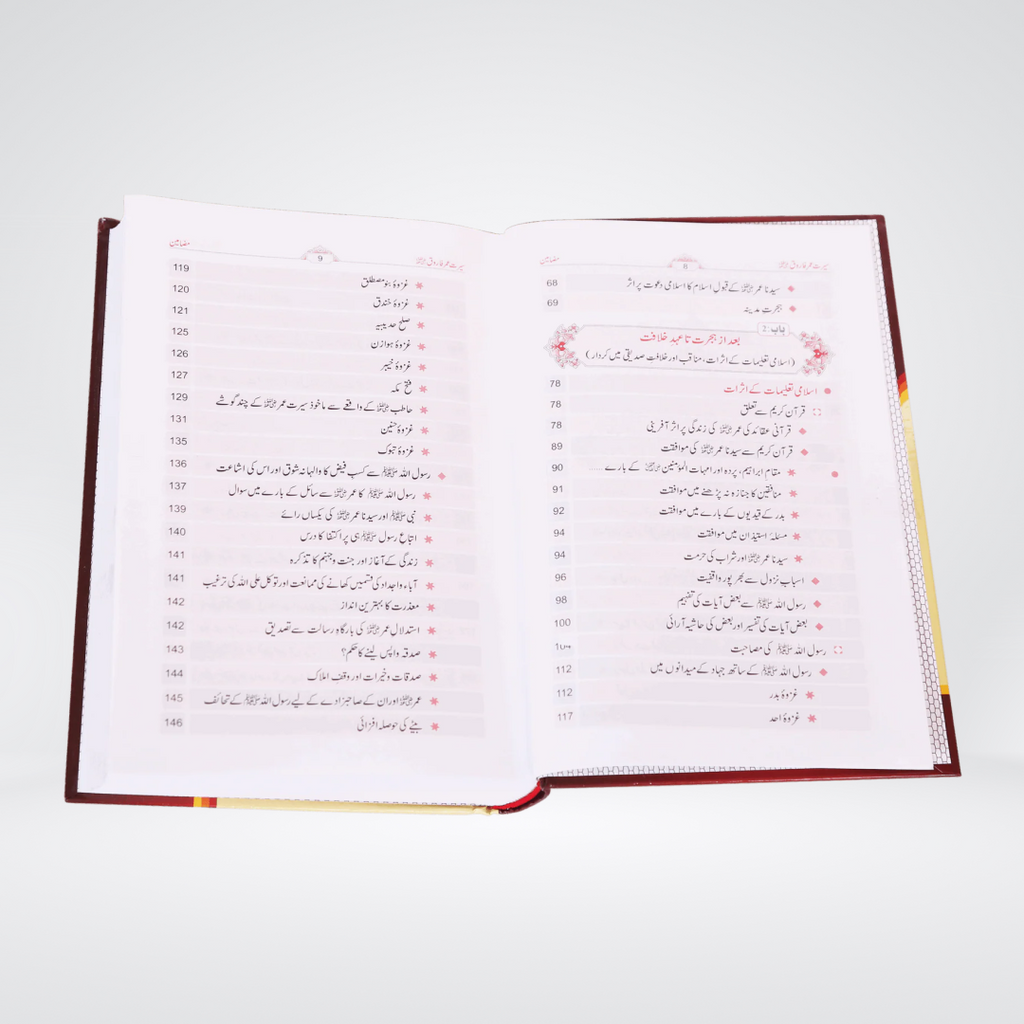 سیرت عمر فاروق ﷜ 8 مضامین
سیدنا عمر ﷜ کے قبول اسلام کا اسلامی دعوت پر اثر 68
ہجرت مدینہ 69
باب: 2
بعد از ہجرت تا عہد خلافت
(اسلامی تعلیمات کے اثرات، مناقب اور خلافت صدیقی میں کردار)
اسلامی تعلیمات کے اثرات 78
قرآن کریم سے تعلق 78
قرآنی عقائد کی عمر ﷜ کی زندگی پر اثر آفرینی 78
قرآن کریم سے سیدنا عمر ﷜ کی موافقت 89
مقام ابراہیم، پردہ اور امہات المؤمنین کے بارے ... 90
منافقین کا جنازہ نہ پڑھنے میں موافقت 91
بدر کے قیدیوں کے بارے میں موافقت 92
مسئلۂ استیذان میں موافقت 94
سیدنا عمر ﷜ اور شراب کی حرمت 94
اسباب نزول سے بھر پور واقفیت 96
رسول اللہ ﷺ سے بعض آیات کی تفہیم 98
بعض آیات کی تفسیر اور بعض کی حاشیہ آرائی 100
رسول اللہ ﷺ کی مصاحبت 104
رسول اللہ ﷺ کے ساتھ جہاد کے میدانوں میں 112
غزوۂ بدر 112
غزوۂ احد 117
سیرت عمر فاروق ﷜ 9 مضامین
غزوۂ بنو مصطلق 119
غزوۂ خندق 120
صلح حدیبیہ 121
غزوۂ ہوازن 125
غزوۂ خیبر 126
فتح مکہ 127
حاطب ﷜ کے واقعے سے ماخوذ سیرت عمر ﷜ کے چند گوشے 129
غزوۂ حنین 131
غزوۂ تبوک 135
رسول اللہ ﷺ سے کسب فیض کا والہانہ شوق اور اس کی اشاعت 136
رسول اللہ ﷺ کا عمر ﷜ سے سائل کے بارے میں سوال 137
نبی ﷺ اور سیدنا عمر ﷜ کی یکساں رائے 139
اتباع رسول ﷺ ہی پر اکتفا کا درس 140
زندگی کے آغاز اور جنت و جہنم کا تذکرہ 141
آباء و اجداد کی قسمیں کھانے کی ممانعت اور توکل علی اللہ کی ترغیب 141
معذرت کا بہترین انداز 142
استدلال عمر ﷜ کی بارگاہ رسالت سے تصدیق 142
صدقہ واپس لینے کا حکم؟ 143
صدقات و خیرات اور وقف املاک 144
عمر ﷜ اور ان کے صاحبزادے کے لیے رسول اللہ ﷺ کے تحائف 145
بیٹے کی حوصلہ افزائی 146